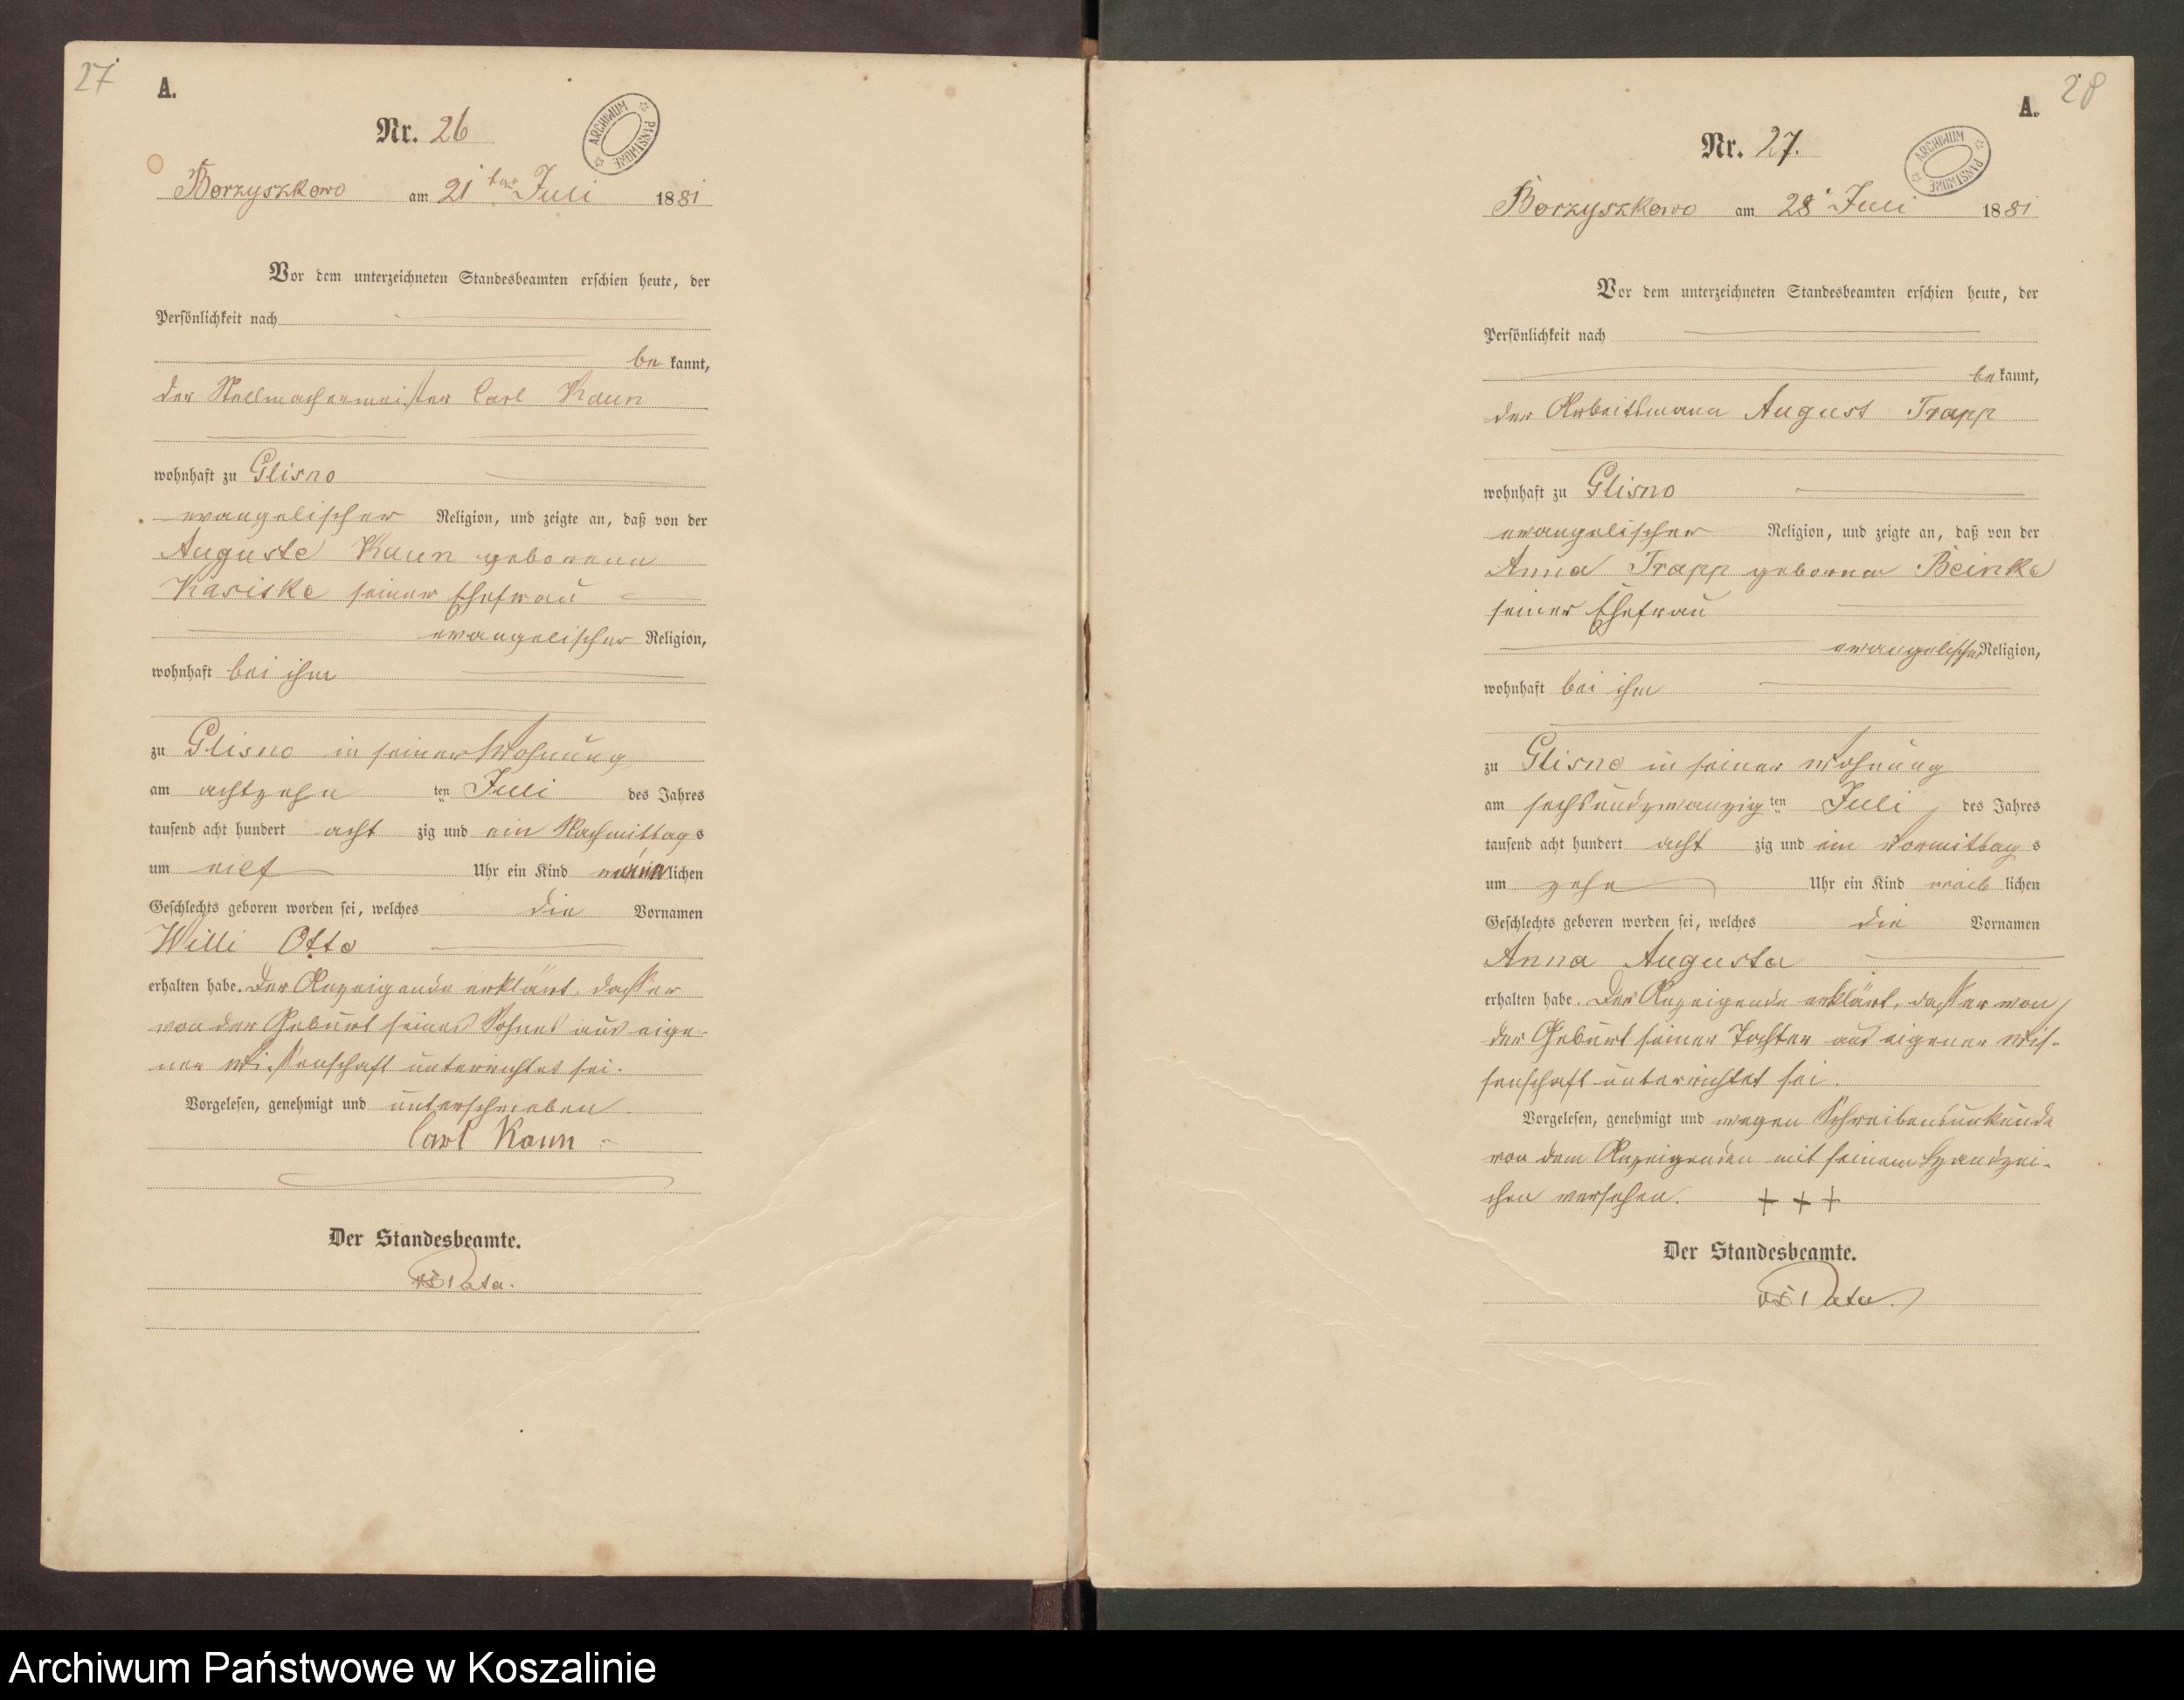 27
A.
Nr. 26
ARCHIWUM PAŃSTWOWE
Borzyszkowo am 21ten Juli 1881
Vor dem unterzeichneten Standesbeamten erschien heute, der
Persönlichkeit nach
be kannt,
der Stellmachermeister Carl Kaun
wohnhaft zu Glisno
evangelischer Religion, und zeigte an, daß von der
Auguste Kaun geborenen
Kasiske seiner Ehefrau
evangelischer Religion,
wohnhaft bei ihm
zu Glisno in seiner Wohnung
am achtzehn ten Juli des Jahres
tausend acht hundert acht zig und ein Nachmittag s
um elf Uhr ein Kind männlichen
Geschlechts geboren worden sei, welches die Vornamen
Willi Otto
erhalten habe. Der Anzeigende erklärt, dass er
von der Geburt seines Sohnes aus eige-
ner Wissenschaft unterrichtet sei.
Vorgelesen, genehmigt und unterschrieben
Carl Kaun
Der Standesbeamte.
28
A.
Nr. 27.
ARCHIWUM PAŃSTWOWE
Borzyszkowo am 28 Juli 1881
Vor dem unterzeichneten Standesbeamten erschien heute, der
Persönlichkeit nach
be kannt,
der Arbeitsmann August Trapp
wohnhaft zu Glisno
evangelischer Religion, und zeigte an, daß von der
Anna Trapp geborenen Beinke
seiner Ehefrau
evangelischer Religion,
wohnhaft bei ihm
zu Glisno in seiner Wohnung
am sechsundzwanzig ten Juli des Jahres
tausend acht hundert acht zig und ein Vormittag s
um zehn Uhr ein Kind weib lichen
Geschlechts geboren worden sei, welches die Vornamen
Anna Augusta
erhalten habe. Der Anzeigende erklärt, dass er von
der Geburt seiner Tochter aus eigener Wis-
senschaft unterrichtet sei.
Vorgelesen, genehmigt und wegen Schreibensunkunde
von dem Anzeigenden mit seinem Handzei-
chen versehen. + + +
Der Standesbeamte.
Archiwum Państwowe w Koszalinie